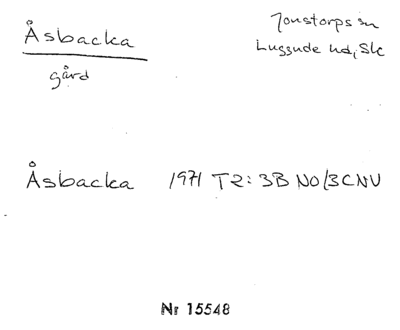 Åsbacka
gård
Jonstorps sn
Luggude hd, Sk
Åsbacka 1971 T2: 3B NO/3C NV
Nr 15548